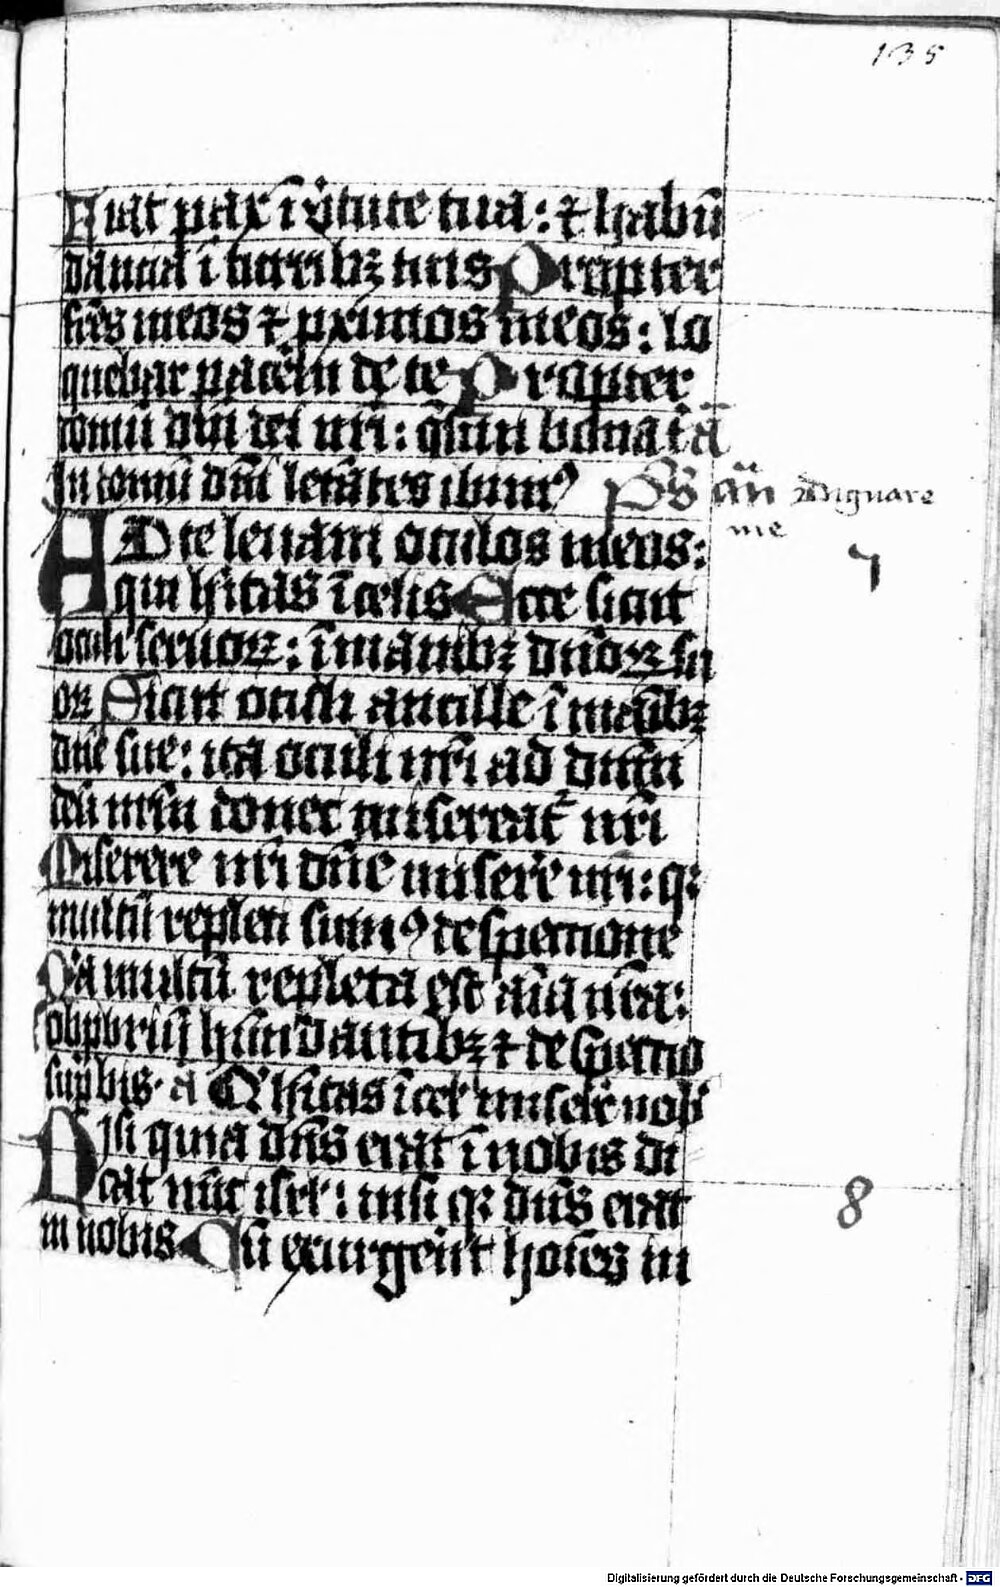 135
Fiat pax ī v̾tute tua : ⁊ habū
dancia ī turribꝫ tuis Propter
fr̄es meos ⁊ pximos meos : lo
quebar pacem de te Propter
domū dn̄i dei nr̄i : q̄siui bona t̄
In domū dn̄i letātes ibimꝰ Ps an̄ Dignare
me
AD te leuaui oculos meos :
qui hītas ī celis Ecce sicut
7
oculi seruoꝝ : ī manibꝫ dn̄oꝝ su
oꝝ Sicut oculi ancille ī manibꝫ
dn̄e sue : ita oculi nr̄i ad dn̄m
deū nr̄m donec misereat̄ nr̄i
Miserere nr̄i dn̄e miserer̄e nr̄i : qꝛ
multū repleti sumꝰ despectione
Qa multū repleta est aīa nr̄a :
obpbriū hūndantibꝫ ⁊ despectio
suꝑbis · a Q' hītas ī cel' miser̄e nob'
Nisi quia dn̄s erat ī nobis di
cat nūc isrl' : nisi qꝛ dn̄s erat
8
in nobis Cū exurgerēt hoīes in
Digitalisierung gefördert durch die Deutsche Forschungsgemeinschaft - DFG